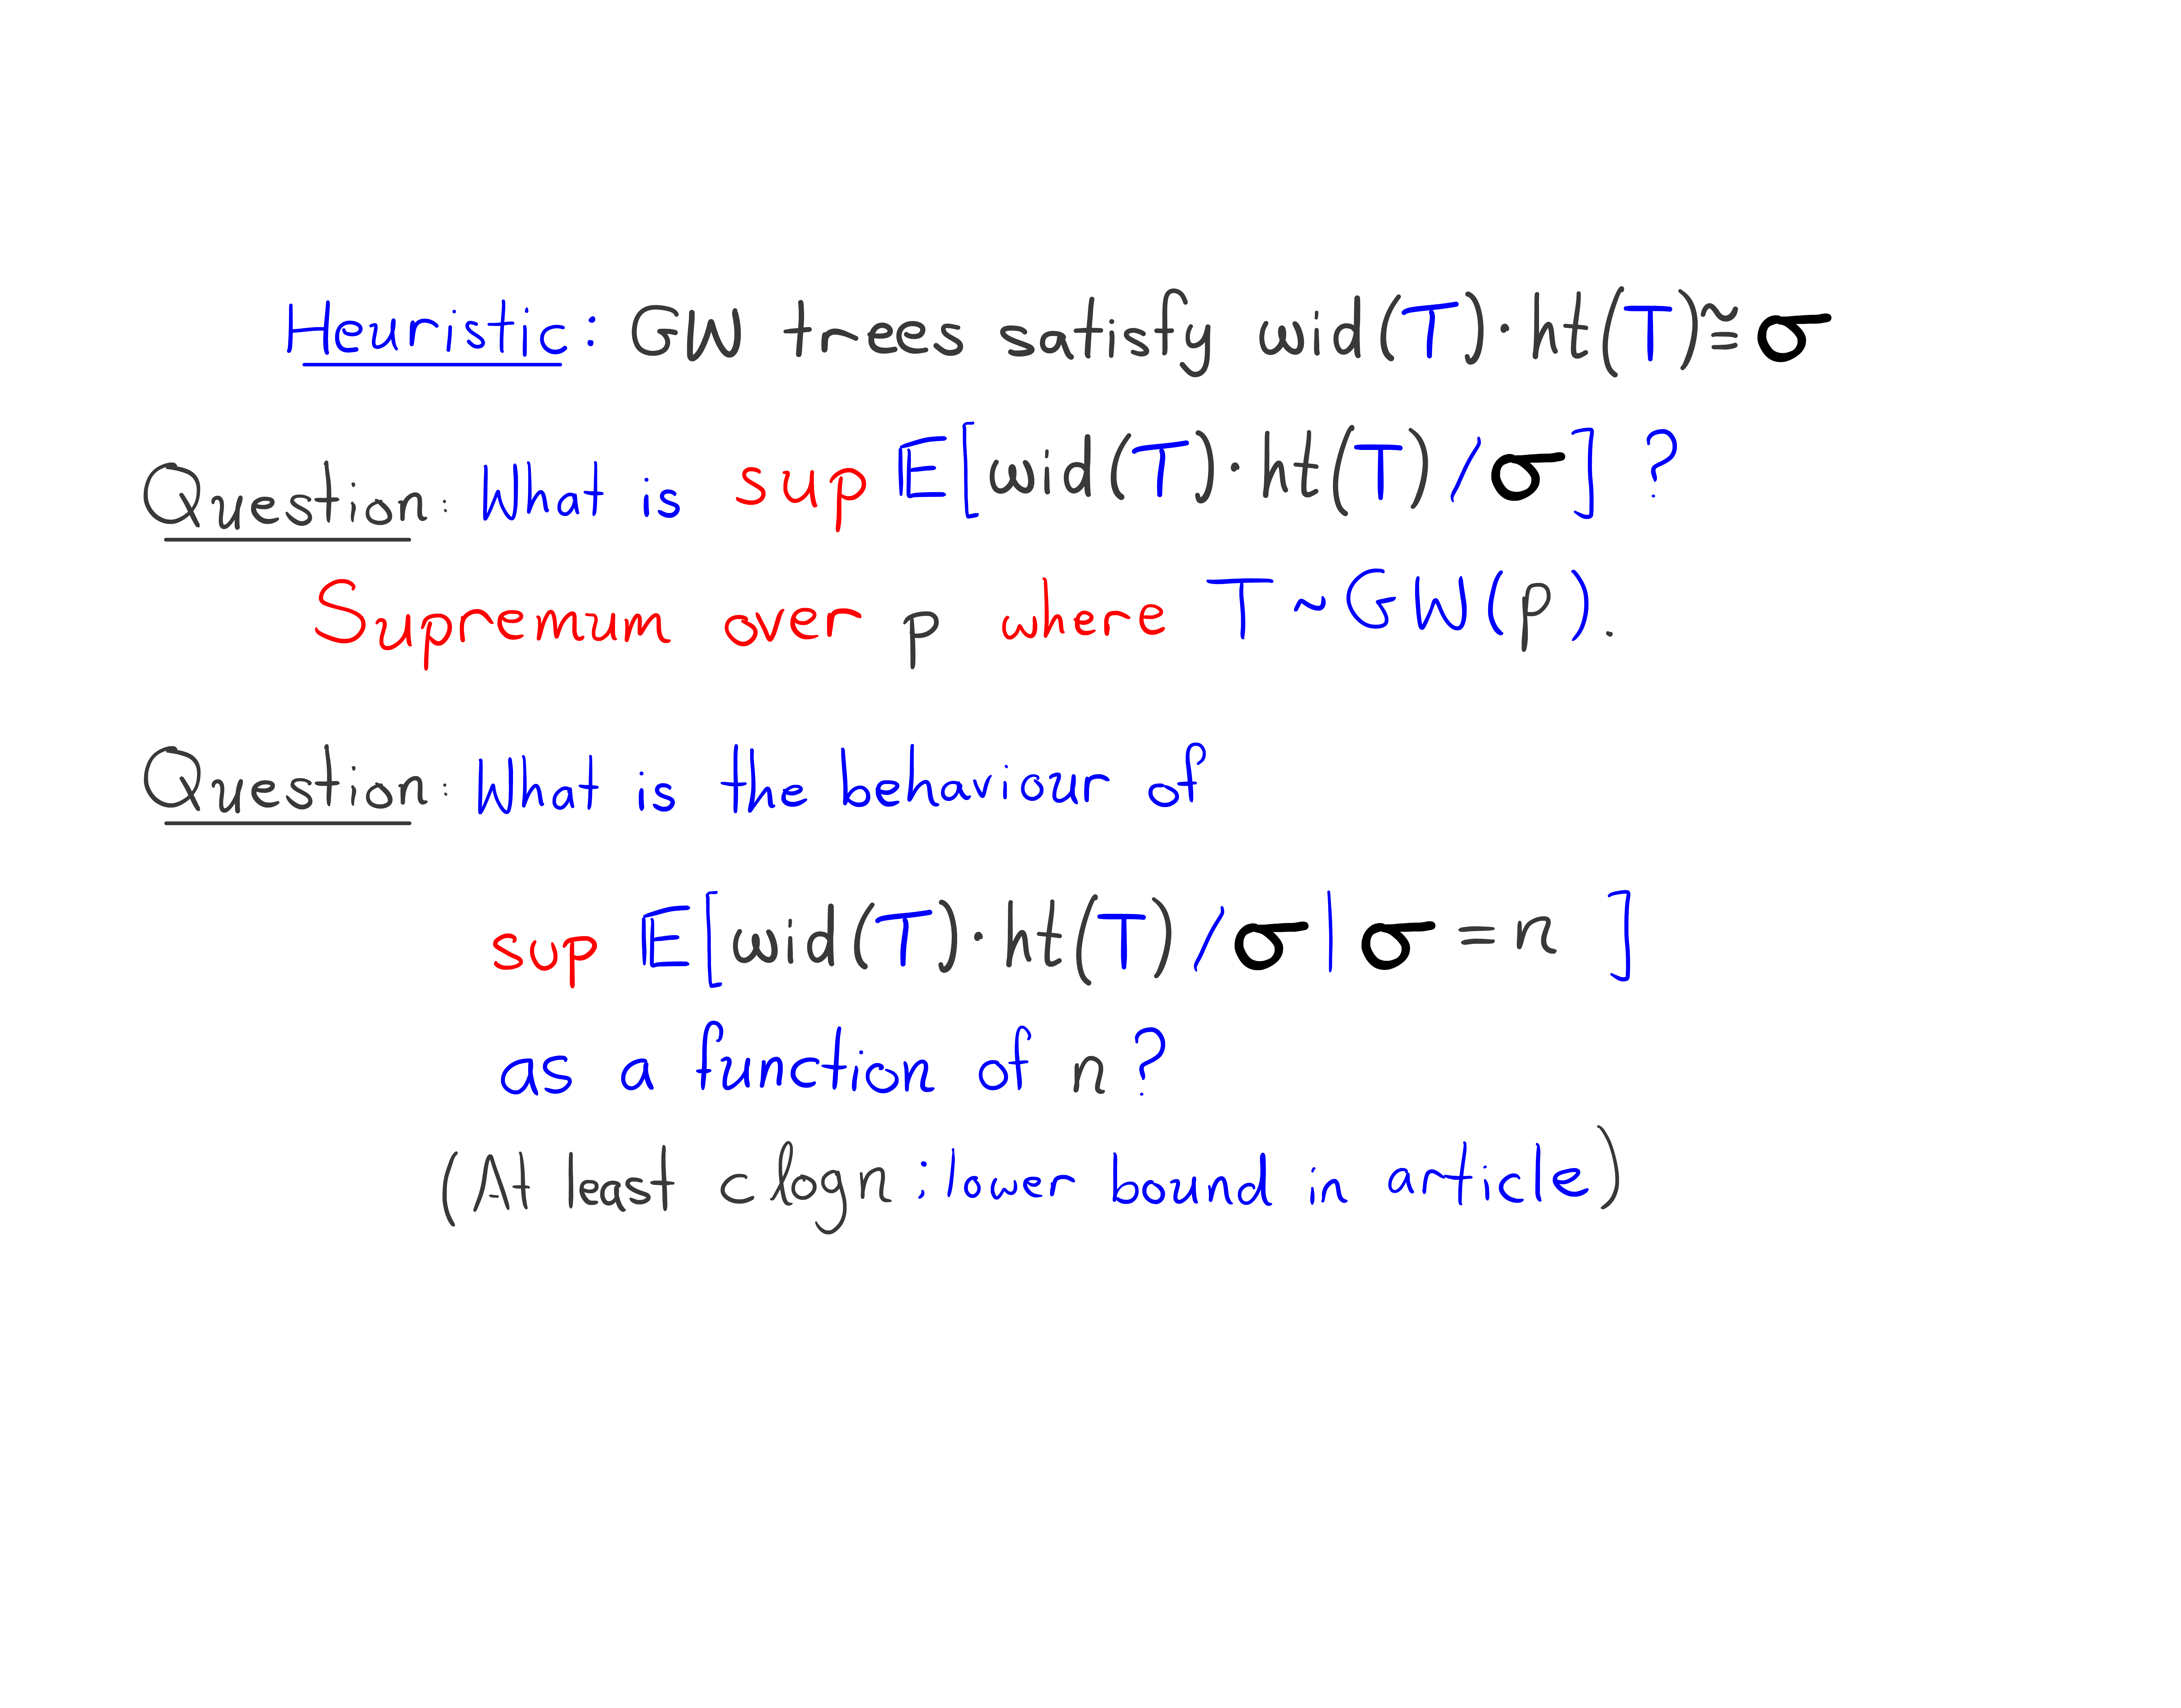 Heuristic: GW trees satisfy wid(T)·ht(T)≅σ
Question: What is sup E[wid(T)·ht(T)/σ]?
Supremum over p where T~GW(p).
Question: What is the behaviour of
sup E[wid(T)·ht(T)/σ|σ=n]
as a function of n?
(At least c logn: lower bound in article)